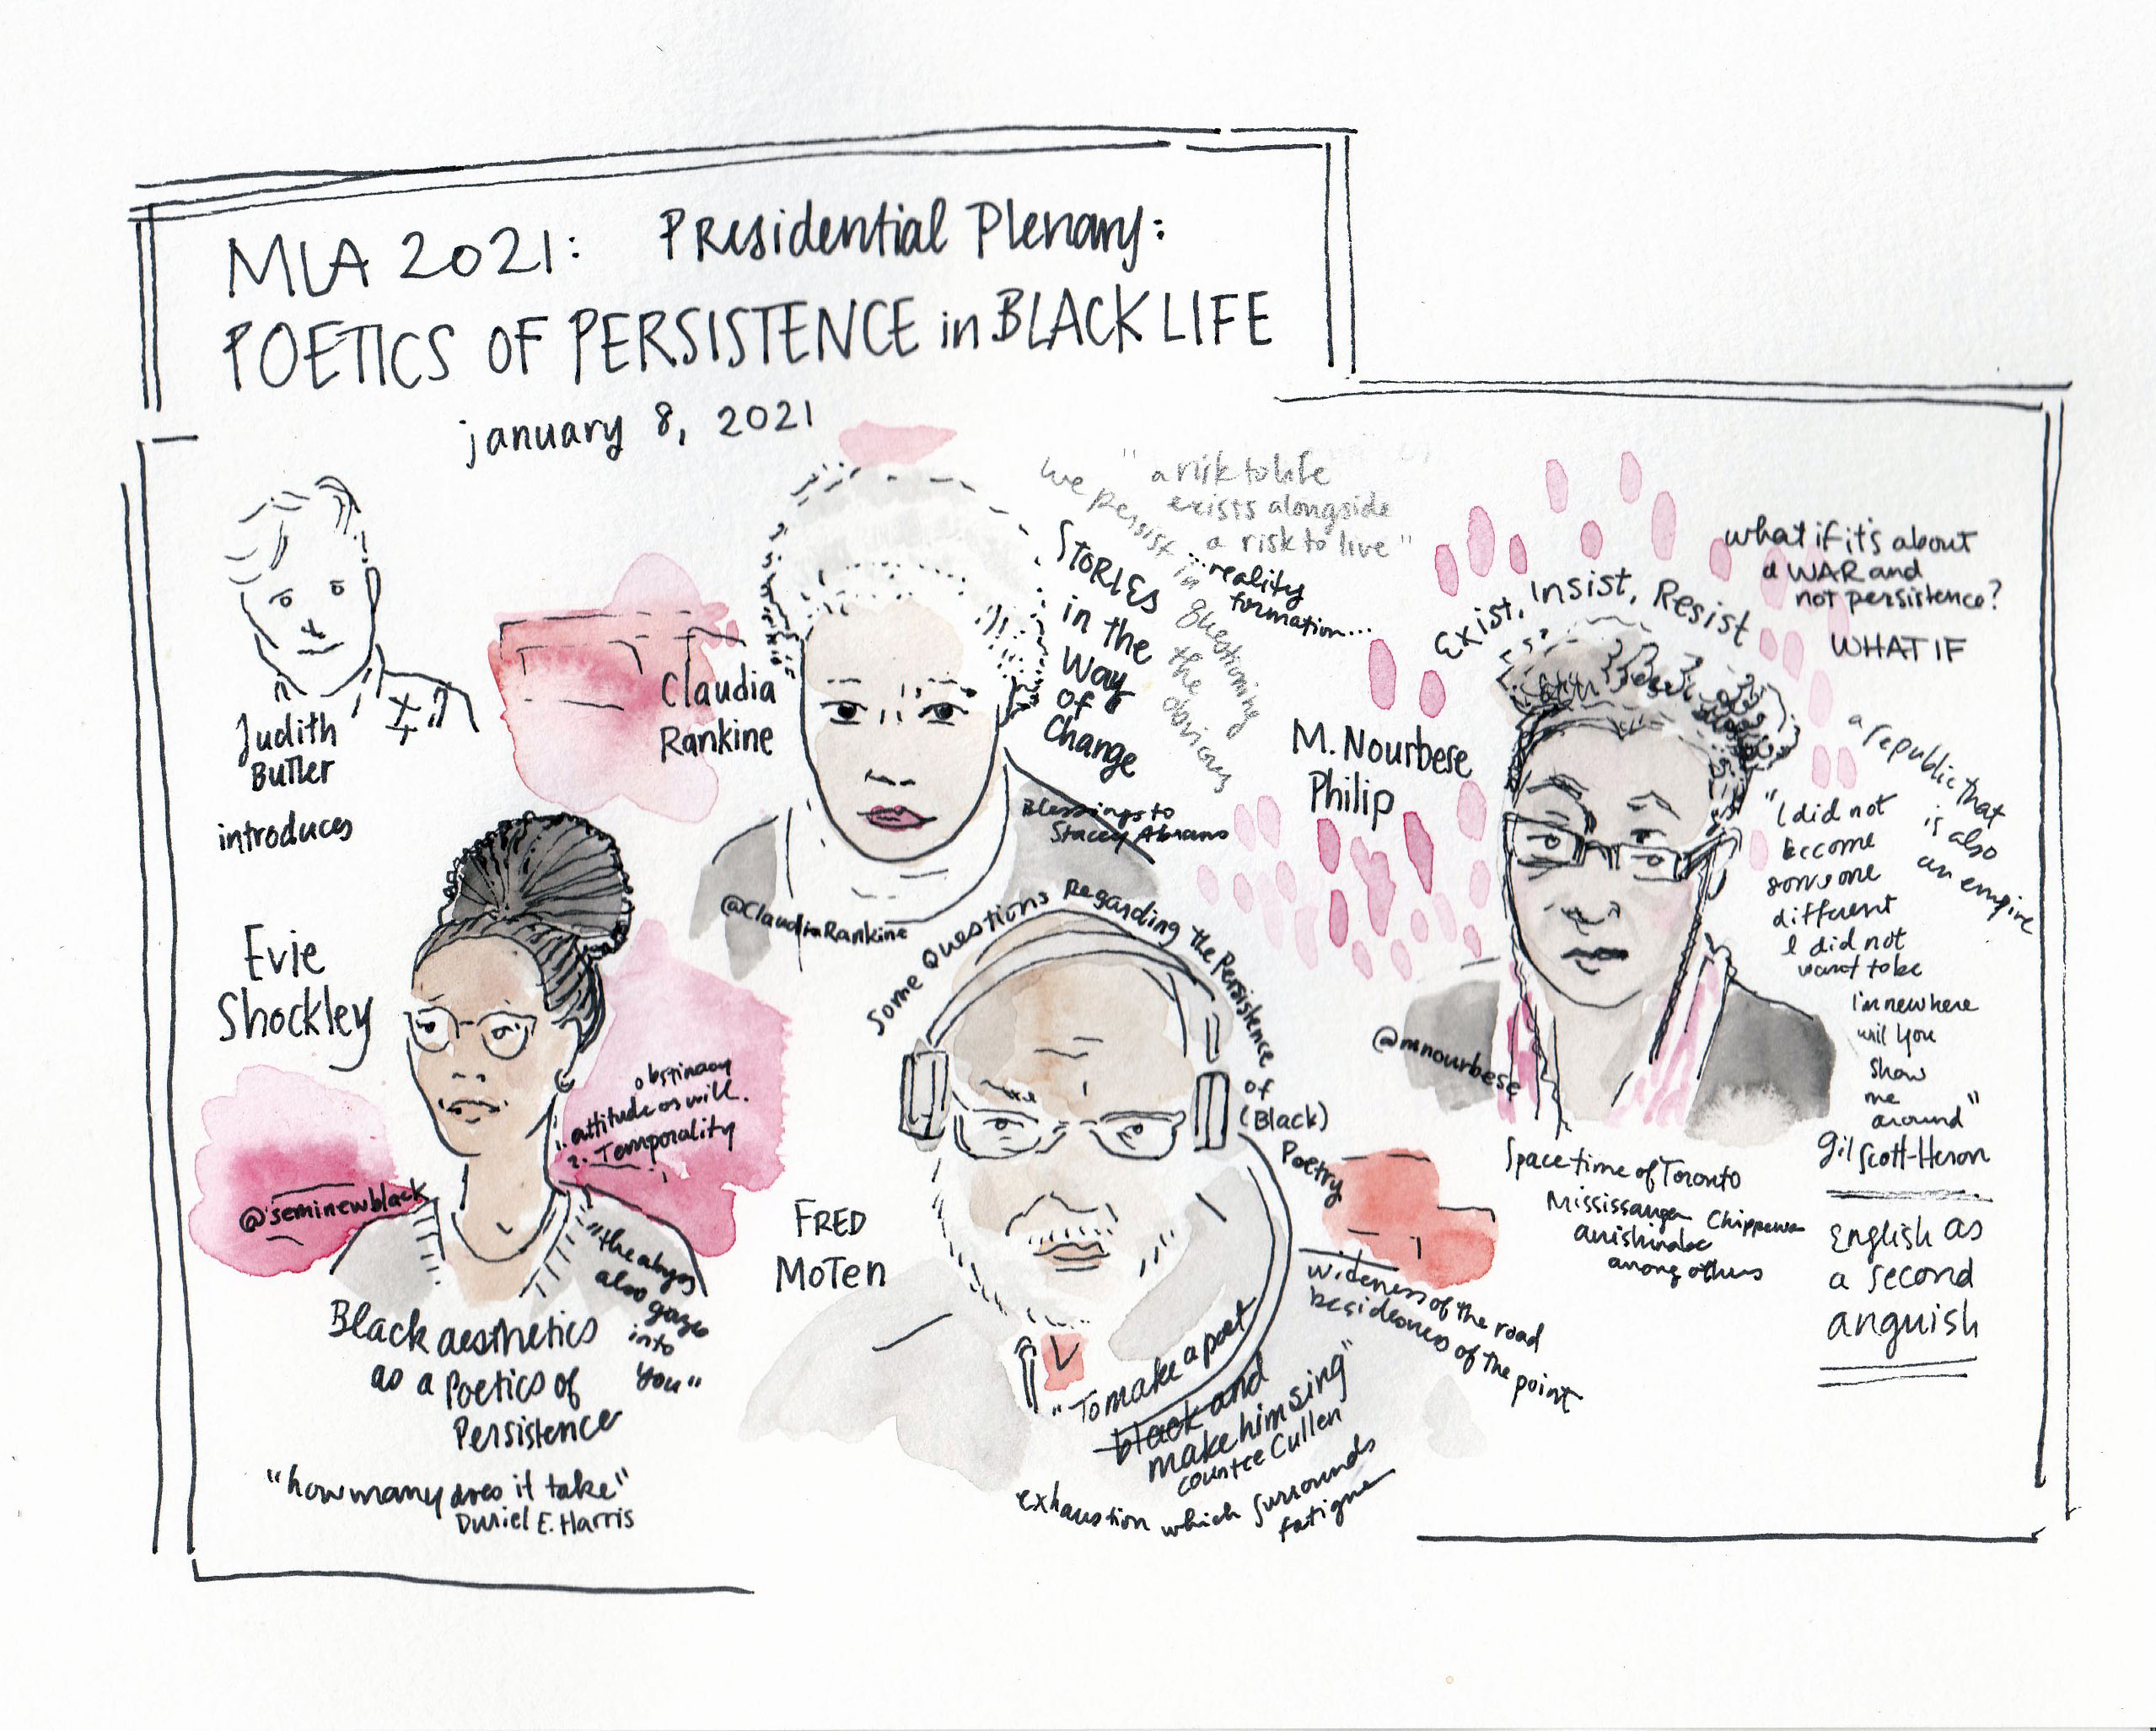 MLA 2021: Presidential Plenary:
POETICS OF PERSISTENCE in BLACK LIFE
january 8, 2021
Judith
Butler
introduces
Claudia
Rankine
@ClaudiaRankine
we persist in questioning
the
"a risk to life
exists alongside
a risk to live"
...reality
formation...
STORIES
in the
Way
of
Change
Blessings to
Stacey Abrams
M. Nourbese
Philip
Exist, Insist, Resist
what if it's about
a WAR and
not persistence?
WHAT IF
a republic that
is also
an empire
"I did not
become
someone
different
I did not
want to be
I'm new here
will you
show
me
around"
gil Scott-Heron
@mnourbese
Space time of Toronto
Mississauga Chippewa
anishinabe
among others
English as
a second
anguish
Evie
Shockley
@seminewblack
obstinacy
1. attitude or will.
2. Temporality
"the abyss
also gazes
into
you"
Black aesthetics
as a Poetics of
Persistence
"how many does it take"
Duriel E. Harris
FRED
MOTEN
Some Questions Regarding the Persistence
of
(Black)
Poetry
wideness of the road
besideness of the point
"To make a poet
black and
make him sing"
countee Cullen
exhaustion which surrounds
fatigue